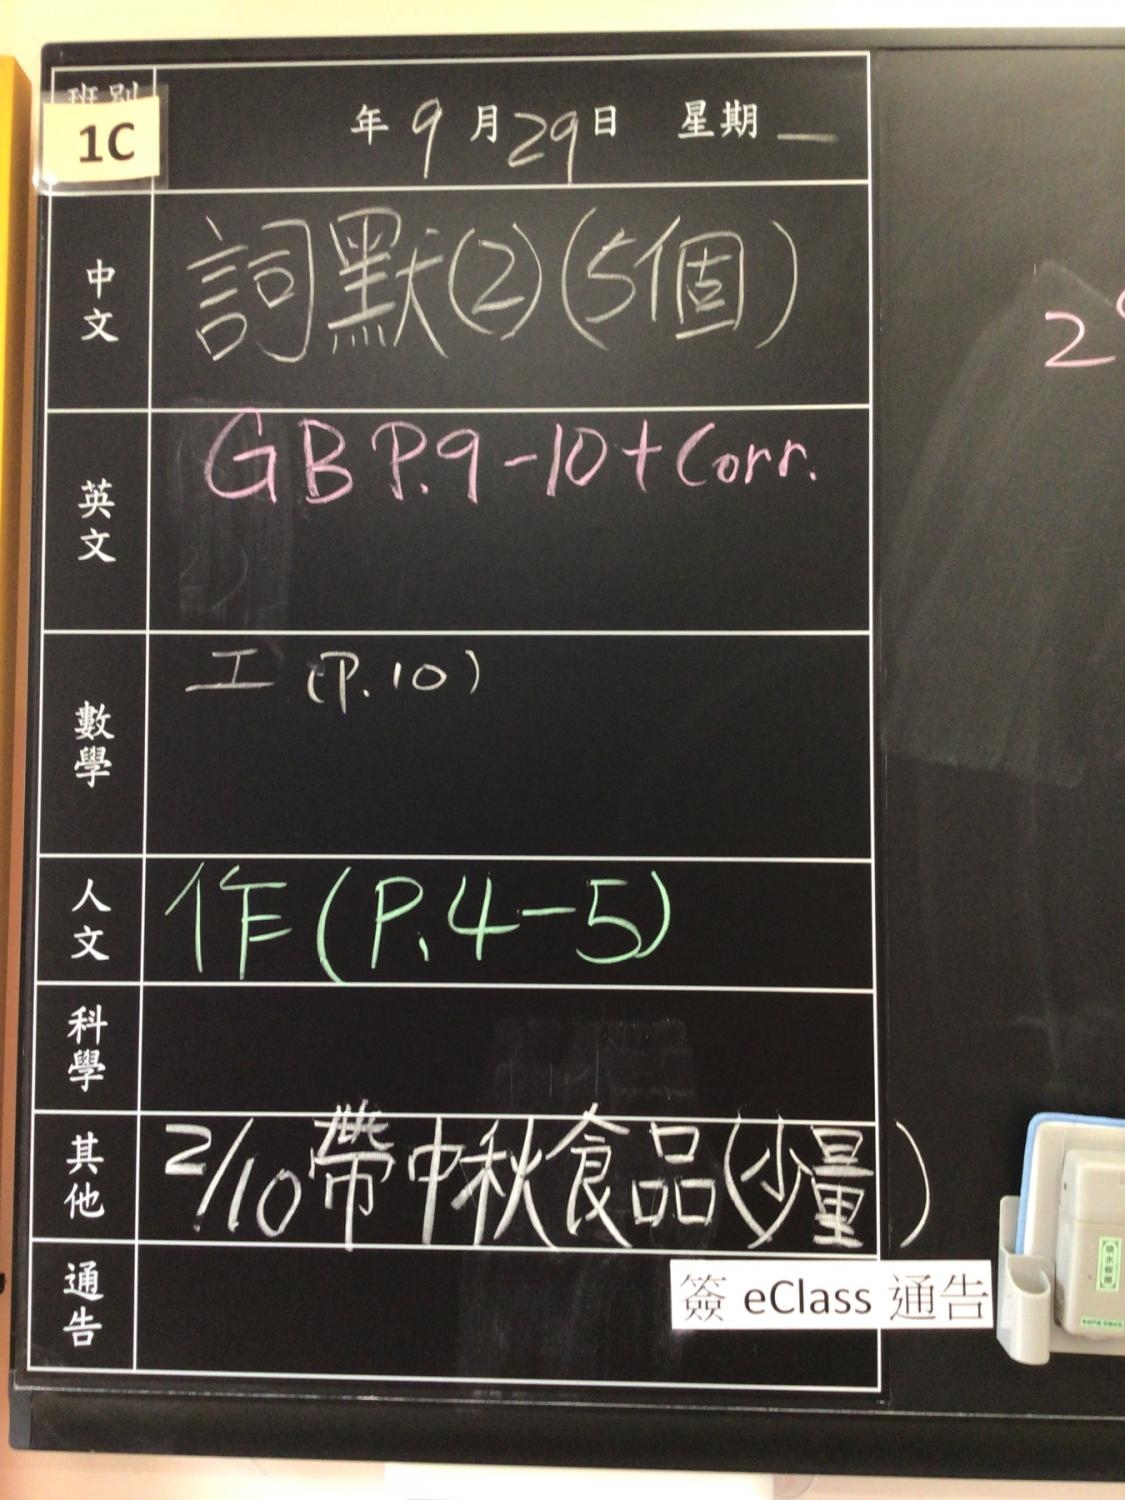 班別
1C
年 9 月 29 日 星期 一
中文
詞默(2)(5個)
英文
GB P.9-10+Corr.
數學
工 (P.10)
人文
作(P.4-5)
科學
其他
2/10帶中秋食品(少量)
通告
簽 eClass 通告
2